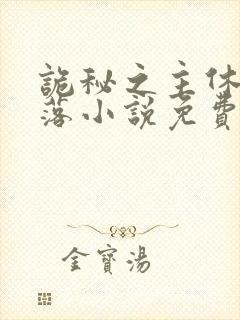 詭秘之主休
落小說免費
金寶湯